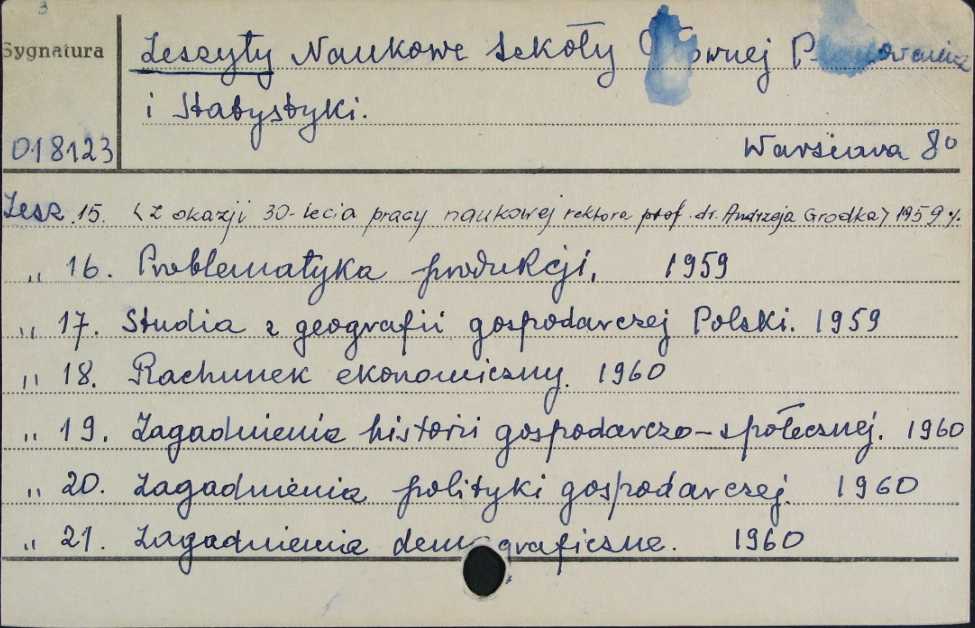 3
Sygnatura
Zeszyty Naukowe Szkoły Głównej Planowania
i Statystyki.
018123
Warszawa 8°
Zesz. 15. (Z okazji 30-lecia pracy naukowej rektora prof. dr. Andrzeja Grodka) 1959 r.
„ 16. Problematyka produkcji. 1959
„ 17. Studia z geografii gospodarczej Polski. 1959
„ 18. Rachunek ekonomiczny. 1960
„ 19. Zagadnienia historii gospodarczo-społecznej. 1960
„ 20. Zagadnienia polityki gospodarczej. 1960
„ 21. Zagadnienia demograficzne. 1960